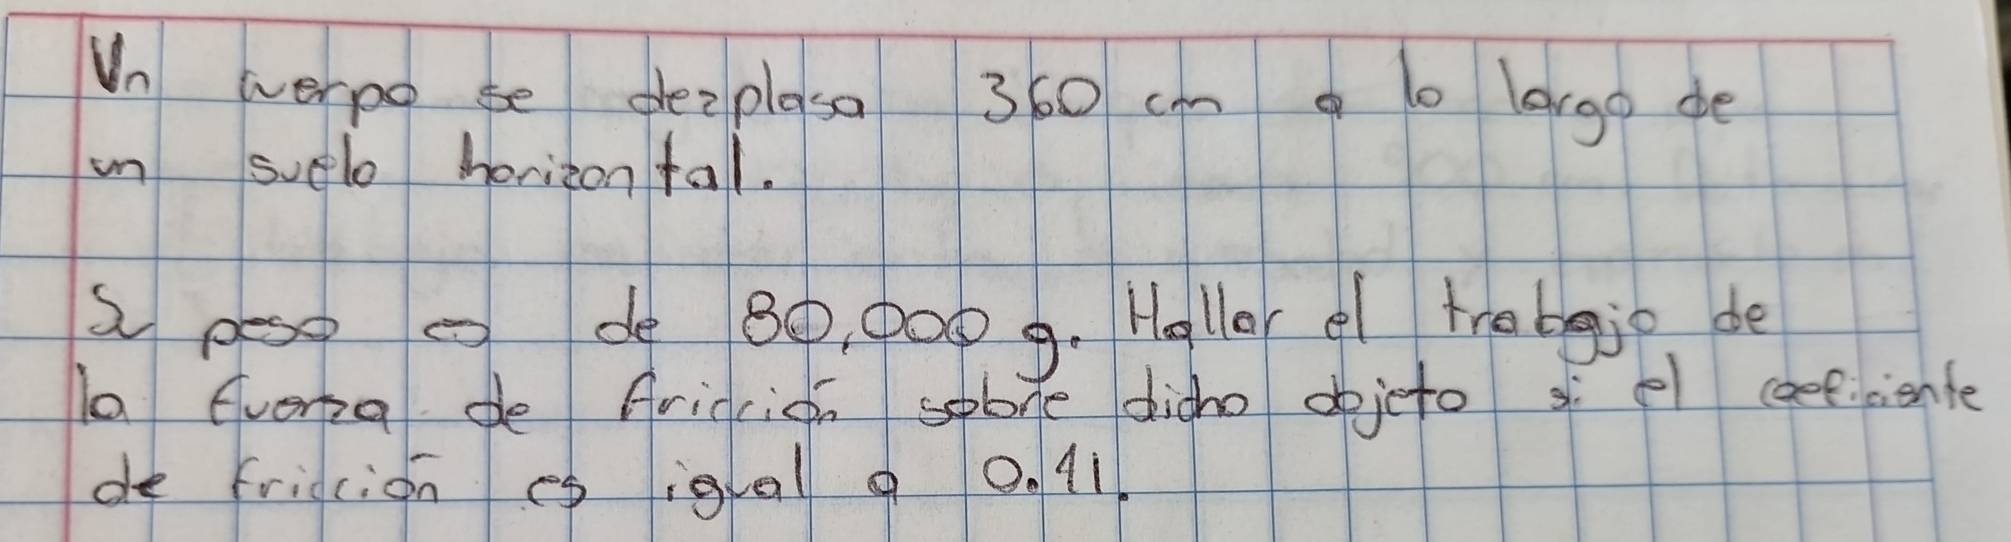 Un cuerpo se dezplasa 360 cm a lo largo de
un suelo horizontal.
Su peso es de 80,000 g. Hallar el trabajo de
la fuerza de fricción sobre dicho objeto si el coeficiente
de fricción es igual a 0.41.